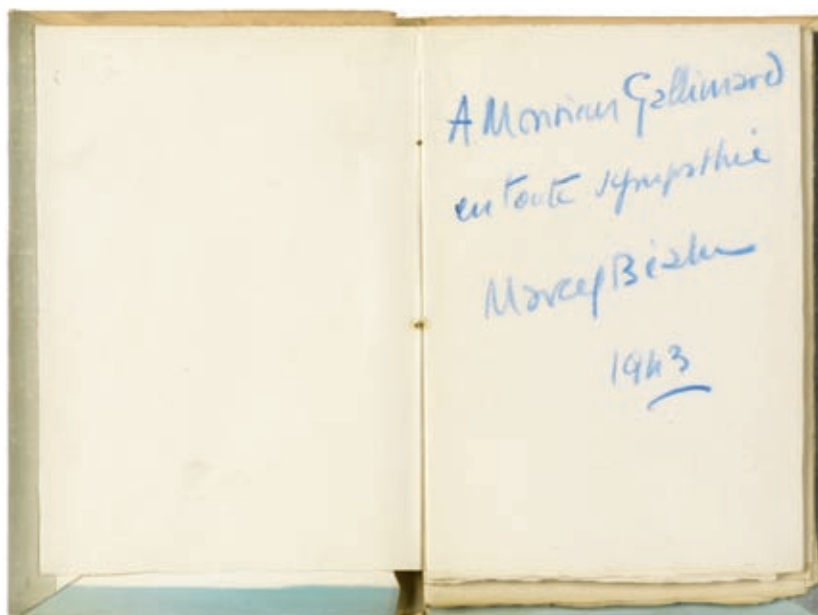 A Monsieur Gallimard
en toute sympathie
Marcel Béalu
1943